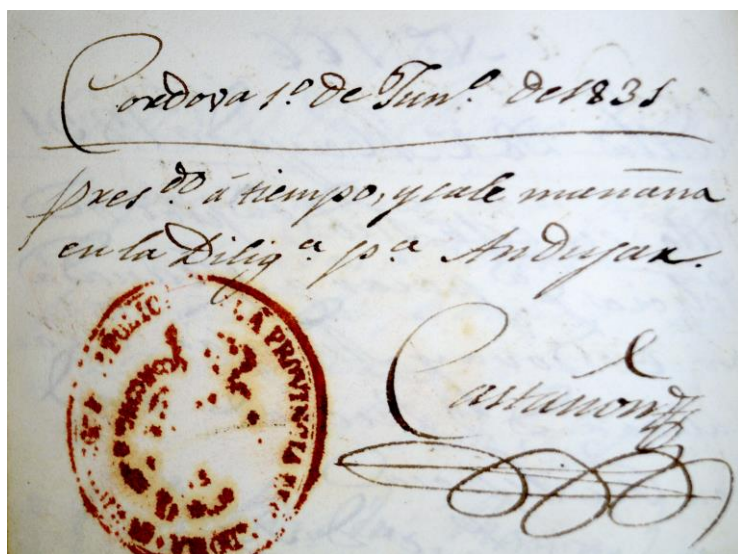 Cordova 1º de Junº de 1831
presdº á tiempo, y sale mañana
en la Diligª pª Andujar.
Castañon
LA PROVINCIA